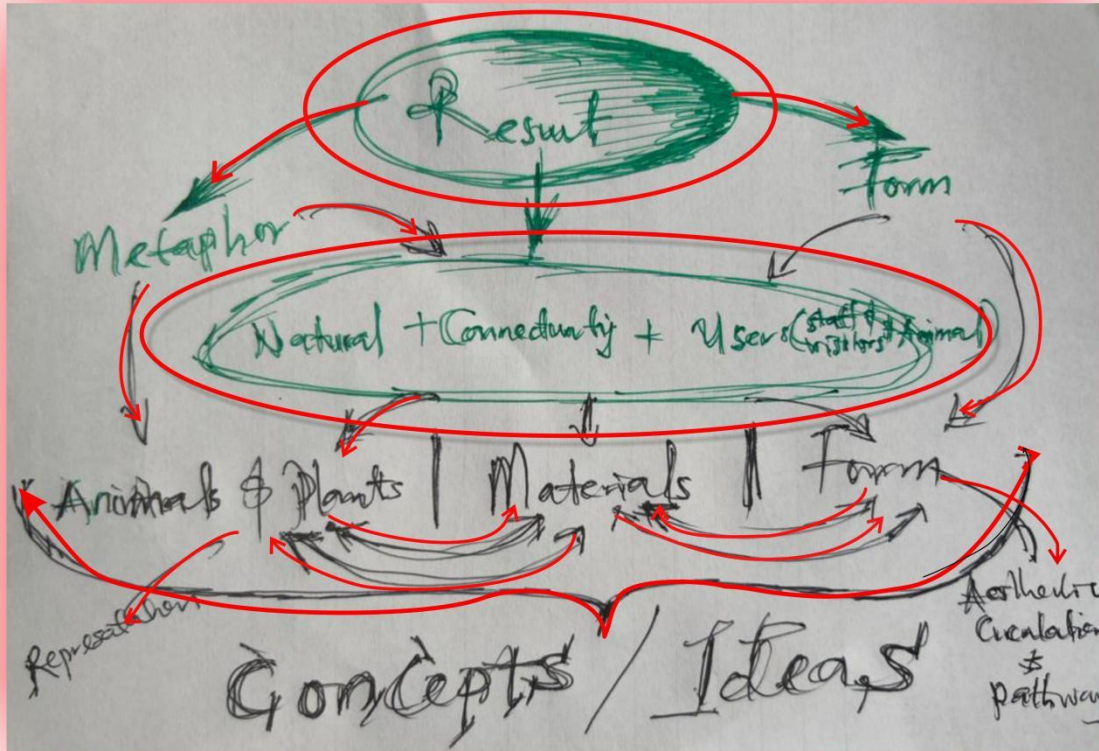 Result
Form
Metaphor
Natural + Connectivity + Users (staff & visitors + Animal)
Animals & Plants | Materials | Form
Representation
Aesthetic
Circulation
&
pathway
Concepts / Ideas